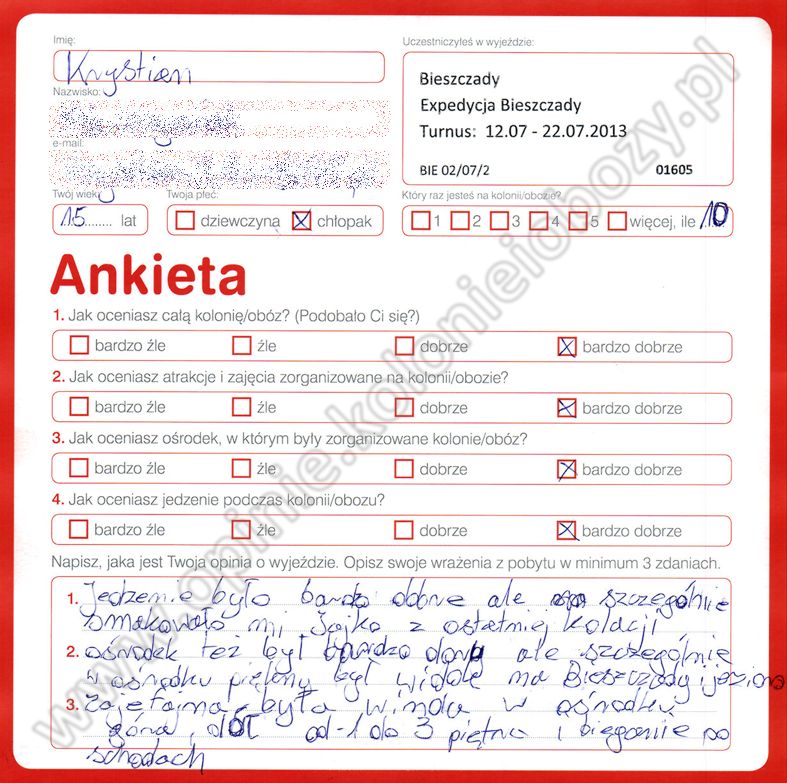 Imię:
Krystian
Nazwisko:
e-mail:
Twój wiek:
15 lat
Twoja płeć:
dziewczyna chłopak
Uczestniczyłeś w wyjeździe:
Bieszczady
Expedycja Bieszczady
Turnus: 12.07 - 22.07.2013
BIE 02/07/2 01605
Który raz jesteś na kolonii/obozie?
1 2 3 4 5 więcej, ile 10
Ankieta
1. Jak oceniasz całą kolonię/obóz? (Podobało Ci się?)
bardzo źle źle dobrze bardzo dobrze
2. Jak oceniasz atrakcje i zajęcia zorganizowane na kolonii/obozie?
bardzo źle źle dobrze bardzo dobrze
3. Jak oceniasz ośrodek, w którym były zorganizowane kolonie/obóz?
bardzo źle źle dobrze bardzo dobrze
4. Jak oceniasz jedzenie podczas kolonii/obozu?
bardzo źle źle dobrze bardzo dobrze
Napisz, jaka jest Twoja opinia o wyjeździe. Opisz swoje wrażenia z pobytu w minimum 3 zdaniach.
1. Jedzenie było bardzo dobre ale szczególnie
smakowało mi jajko z ostatniej kolacji
2. ośrodek też był bardzo dobry ale szczególnie
w ośrodku piękny był widok na Bieszczady i jezioro
3. Zajefajna była winda w ośrodku
góra, dół od -1 do 3 piętra i bieganie po
schodach
www.opinie.kolonieiobozy.pl